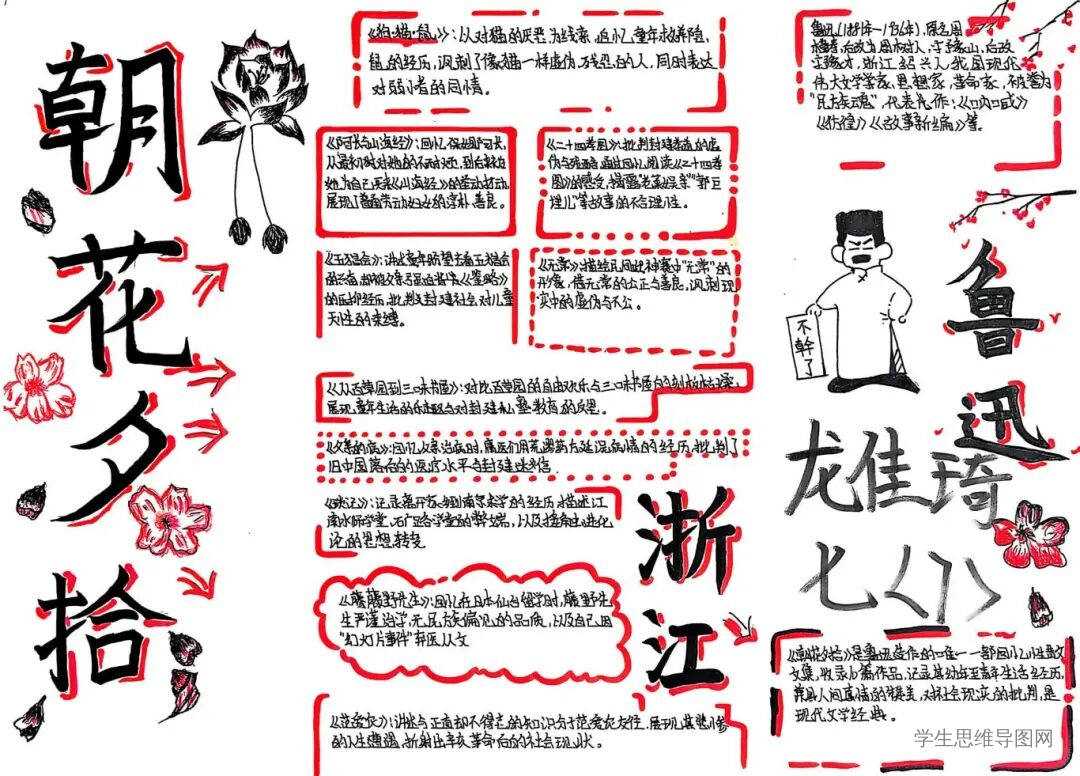 朝花夕拾
《狗·猫·鼠》:从对猫的厌恶为线索,追忆童年救养隐
鼠的经历,讽刺了像猫一样虚伪、残忍的人,同时表达
对弱小者的同情。
《阿长与山海经》:回忆保姆阿长,
从最初对她的不耐烦,到后来因
她为自己买来《山海经》的举动打动,
展现了普通劳动妇女的淳朴、善良。
《二十四孝图》:批判封建孝道的虚
伪与残酷,通过回忆阅读《二十四孝
图》的感受,揭露"老莱娱亲""郭巨
埋儿"等故事的不合理性。
《五猖会》:讲述童年盼望去看五猖会
的兴奋,却被父亲逼迫背诵《鉴略》
的压抑经历,批判了封建社会对儿童
天性的束缚。
《无常》:描绘民间迎神赛中"无常"的
形象,借无常的公正与善良,讽刺现
实中的虚伪与不公。
《从百草园到三味书屋》:对比百草园的自由欢乐与三味书屋的刻板枯燥,
展现童年生活的乐趣与对封建私塾教育的反思。
《父亲的病》:回忆父亲治病时,庸医们用荒谬药方延误病情的经历,批判了
旧中国落后的医疗水平与封建迷信。
《琐记》:记录离开家乡到南京求学的经历,描述江
南水师学堂、矿路学堂的弊端,以及接触进化
论的思想转变
《藤野先生》:回忆在日本仙台留学时,藤野先
生严谨治学,无民族偏见的品质,以及自己因
"幻灯片事件"弃医从文
《范爱农》:讲述与正直却不得志的知识分子范爱农交往,展现其悲惨
的人生遭遇,折射出辛亥革命后的社会现状。
浙江
鲁迅(1881年—1936年),原名周
樟寿,后改为周树人,字豫山,后改
字豫才,浙江绍兴人,我国现代
伟大文学家,思想家,革命家,被誉为
"民族魂",代表作:《呐喊》
《彷徨》《故事新编》等。
鲁迅
不幹了
龙佳琦
七〈1〉
《朝花夕拾》是鲁迅先生所作的唯一一部回忆性散文
文集,收录10篇作品,记录其幼年至青年生活经历,
兼具人间真情的赞美,对社会现实的批判,是
现代文学经典。
学生思维导图网